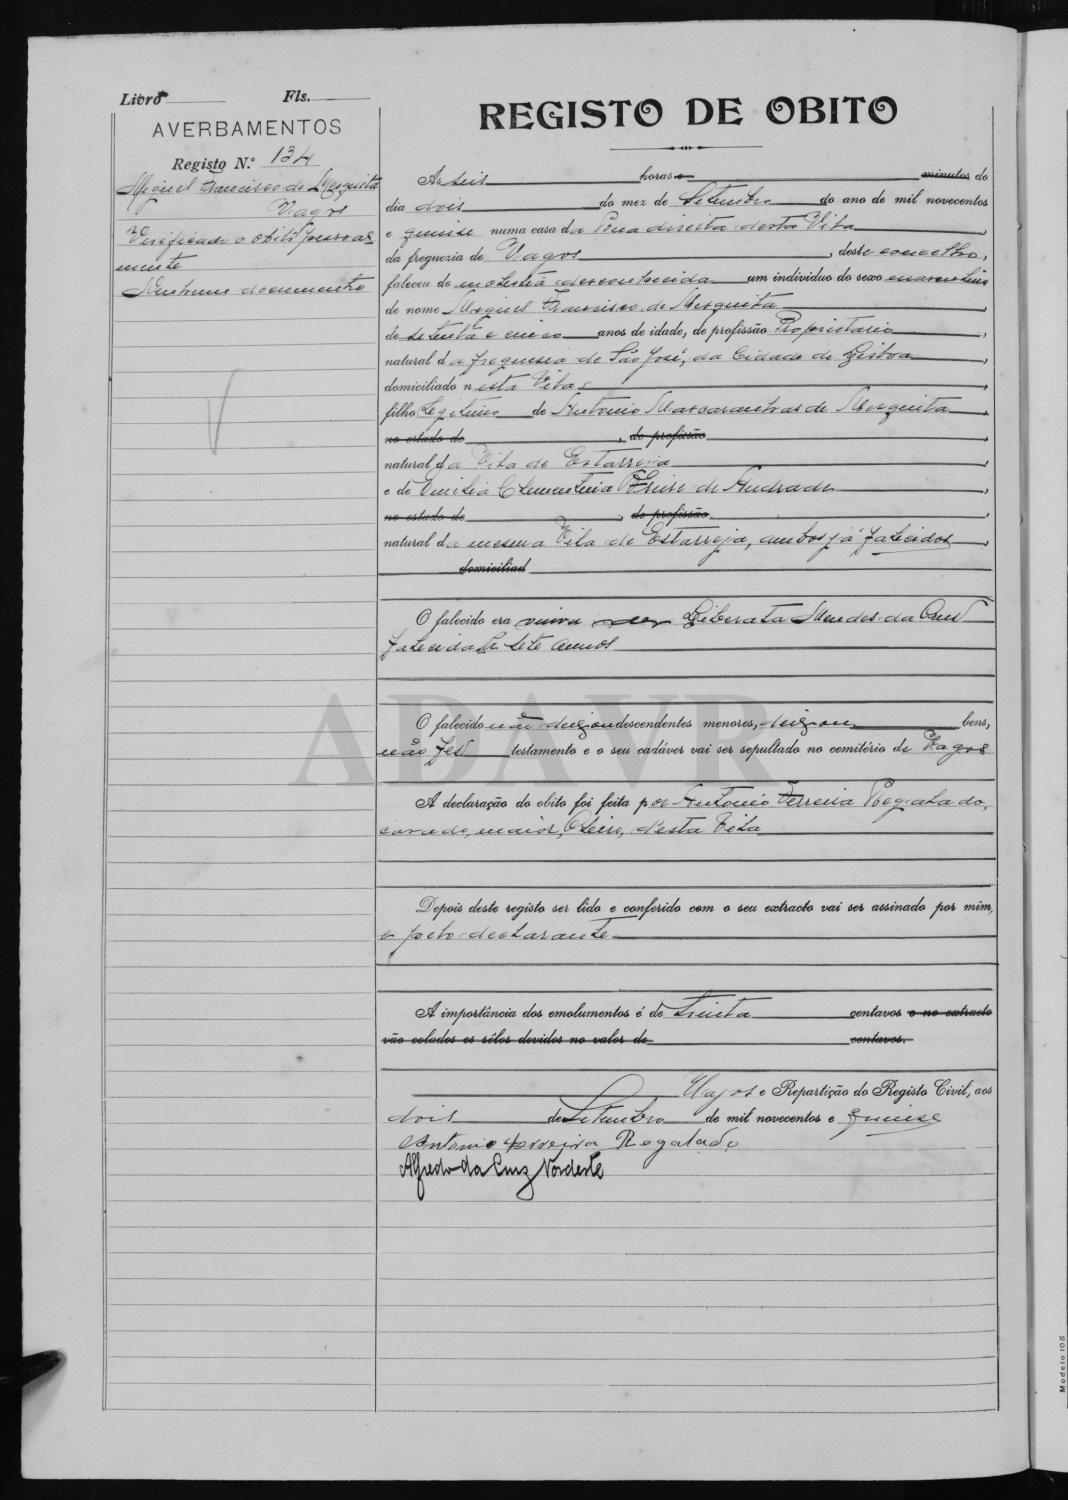 Livro Fls.
AVERBAMENTOS
Registo N.º 134
Miguel Francisco de Mesquita
Vagos
Verificado o obito pessoal-
mente
Nenhum documento
REGISTO DE OBITO
Ás seis horas e minutos do
dia dois do mez de Setembro do ano de mil novecentos
e quinze numa casa da Rua direita desta Vila,
da freguezia de Vagos, deste concelho,
faleceu de molestia desconhecida um individuo do sexo masculino
de nome Miguel Francisco de Mesquita,
de setenta e cinco anos de idade, de profissão Proprietario,
natural da freguesia de São José, da Cidade de Lisboa,
domiciliado nesta Vila,
filho Legitimo de Antonio Mascarenhas de Mesquita,
no estado de, de profissão,
natural da Vila de Estarreja,
e de Emilia Clementina Freire de Andrade,
no estado de, de profissão,
natural da mesma Vila de Estarreja, ambos já falecidos,
domiciliad
O falecido era viuvo de Liberata Mendes da Cruz
falecida há sete annos
O falecido não deixou descendentes menores, deixou bens,
não fez testamento e o seu cadáver vai ser sepultado no cemitério de Vagos
A declaração do obito foi feita por Antonio Ferreira Regalado,
casado, maior, Oleiro, desta Vila
Depois deste registo ser lido e conferido com o seu extracto vai ser assinado por mim,
e pelo declarante
A importância dos emolumentos é de trinta centavos e no extracto
vão colados os sêlos devidos no valor de centavos.
Vagos e Repartição do Registo Civil, aos
dois de Setembro de mil novecentos e quinze
Antonio Ferreira Regalado
Alfredo da Cruz Nordeste
ADAVR
Modelo 105